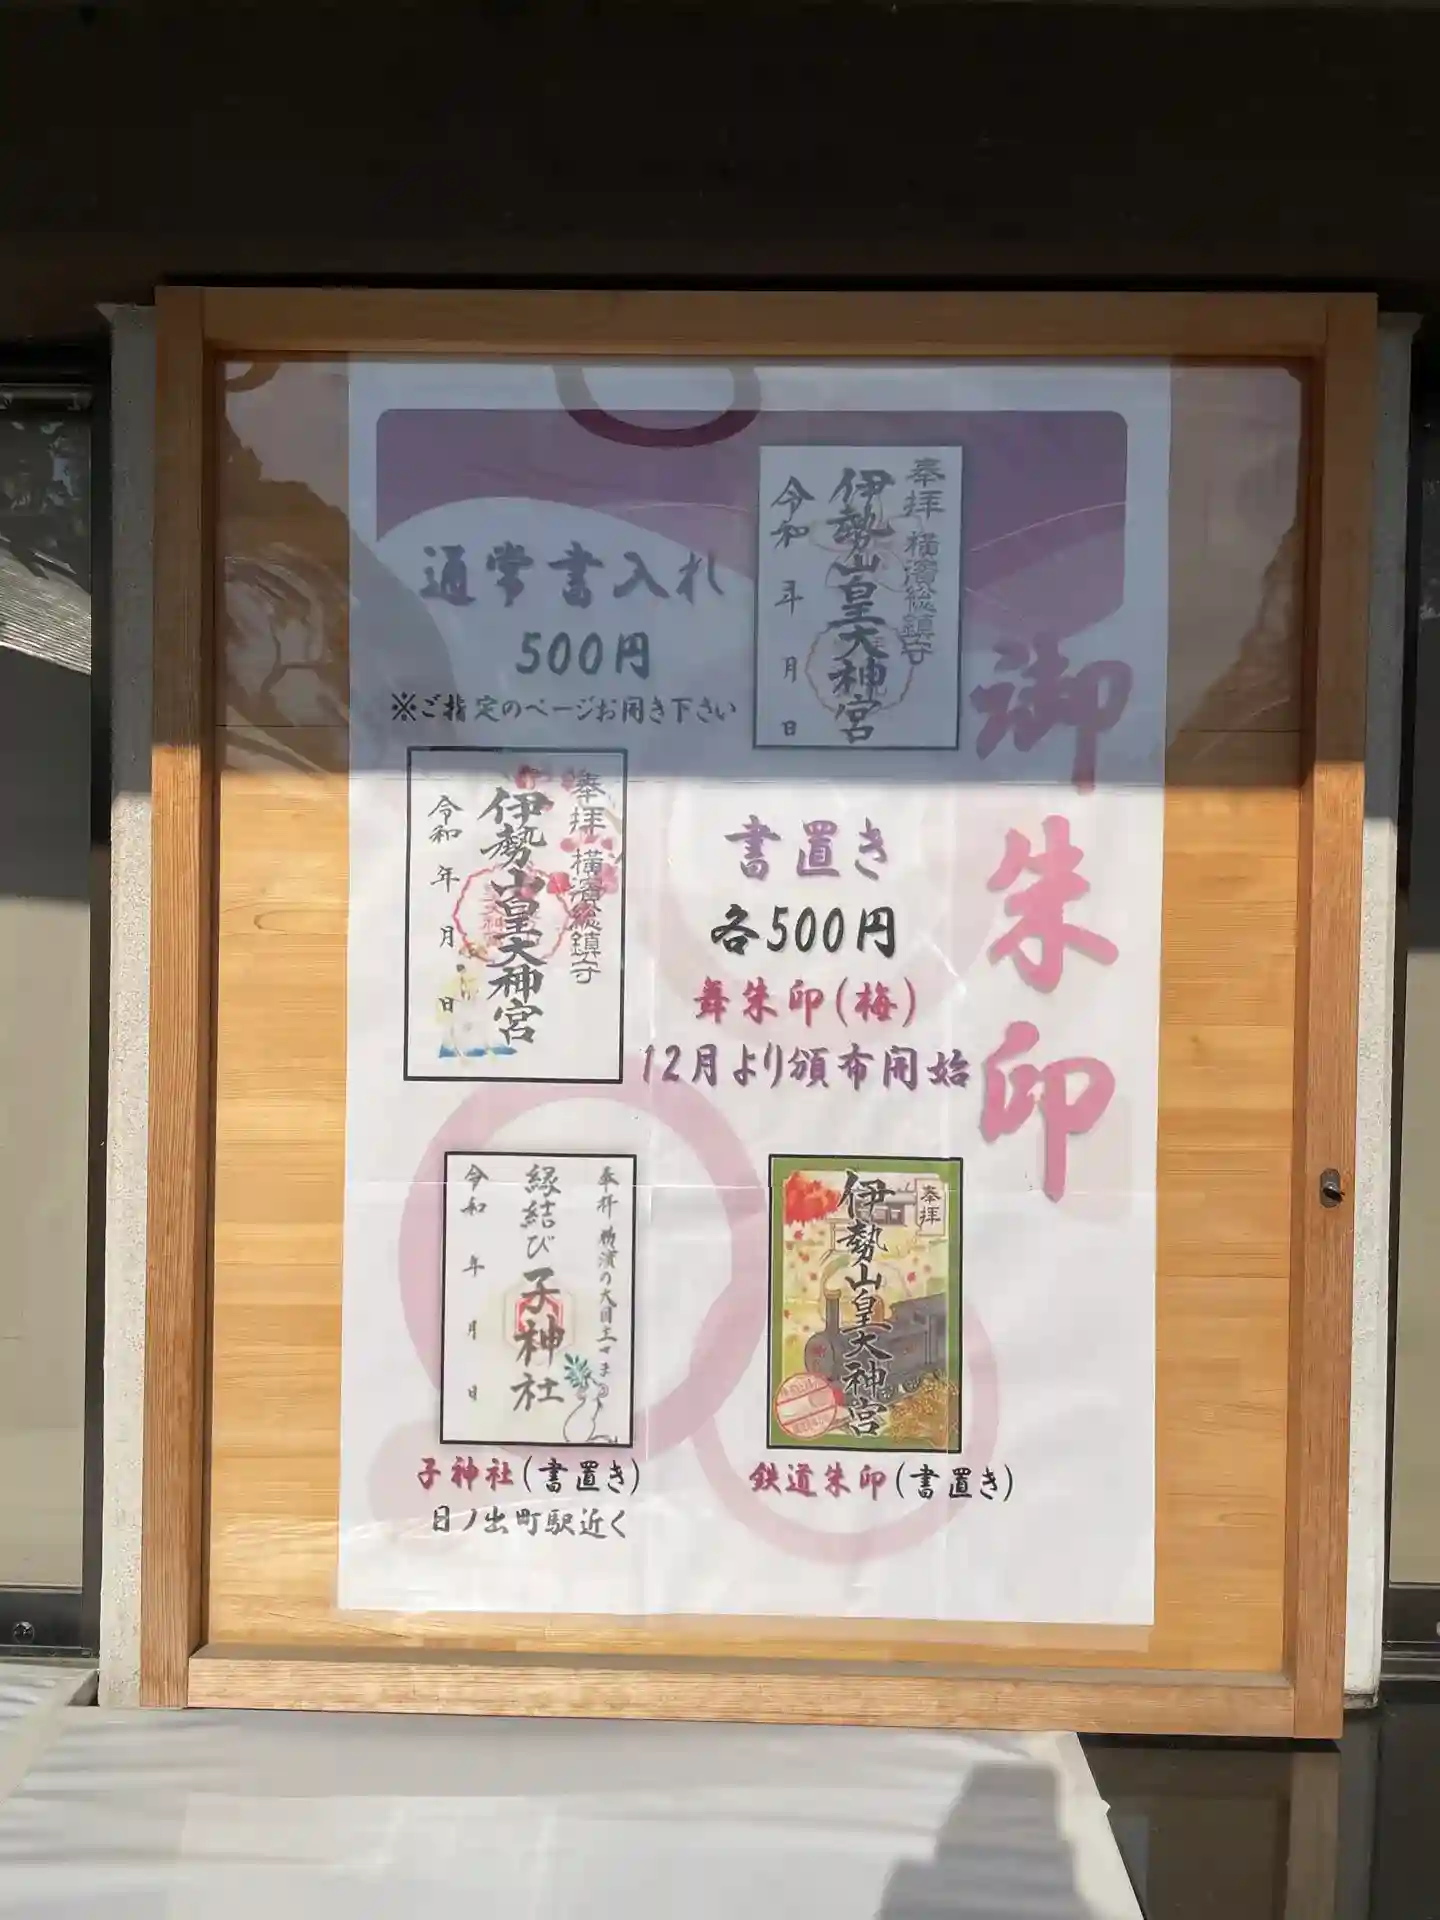 御朱印
通常書入札
500円
※ご指定のページお開き下さい
奉拝 横濱総鎮守
伊勢山皇大神宮
令和 年 月 日
書置き
各500円
舞朱印(梅)
12月より頒布開始
奉拝 横濱総鎮守
伊勢山皇大神宮
令和 年 月 日
奉拝 横濱の大国主
縁結び 子神社
令和 年 月 日
子神社(書置き)
日ノ出町駅近く
奉拝
伊勢山皇大神宮
鉄道朱印(書置き)